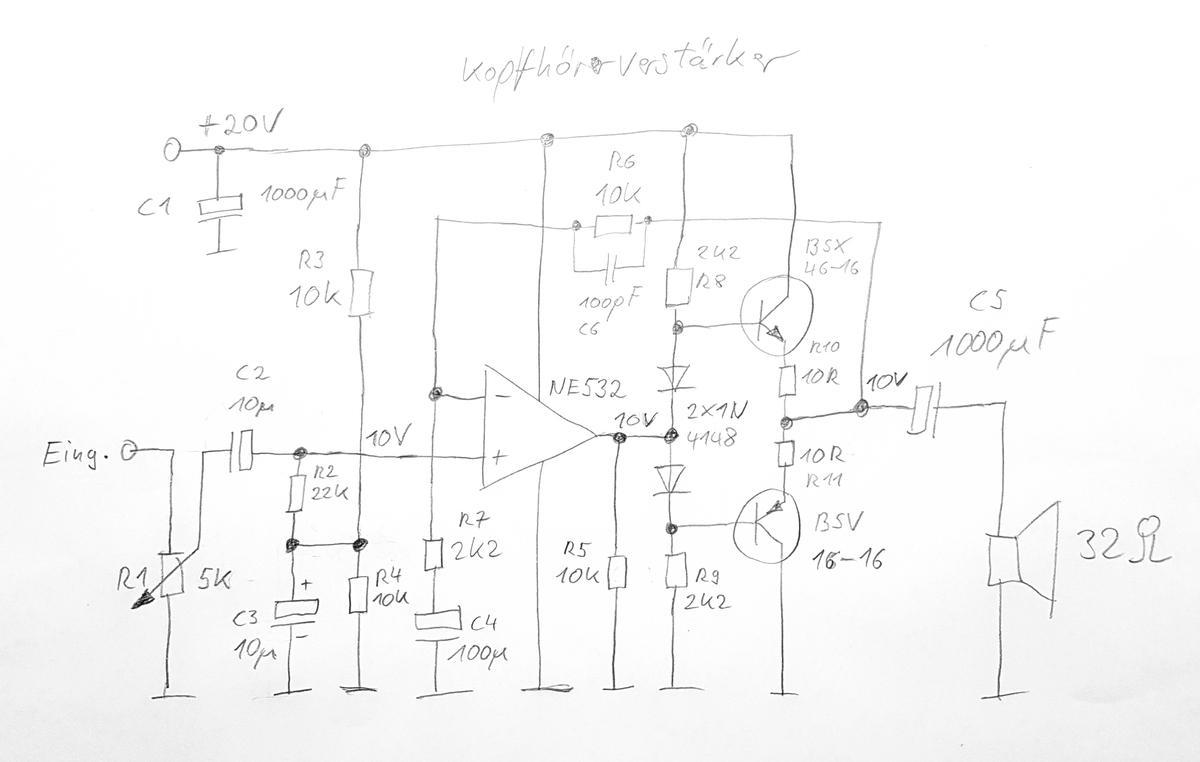 Kopfhörerverstärker
+20V
C1
1000µF
R6
10k
R3
10k
2k2
R8
BSX
46-16
100pF
C6
C5
1000µF
C2
10µ
NE532
R10
10R
10V
Eing.
10V
10V
2x1N
4148
−
+
R2
22k
10R
R11
R1
5K
R7
2k2
R5
10k
BSV
16-16
32Ω
+
C3
10µ
−
R4
10k
C4
100µ
R9
2k2